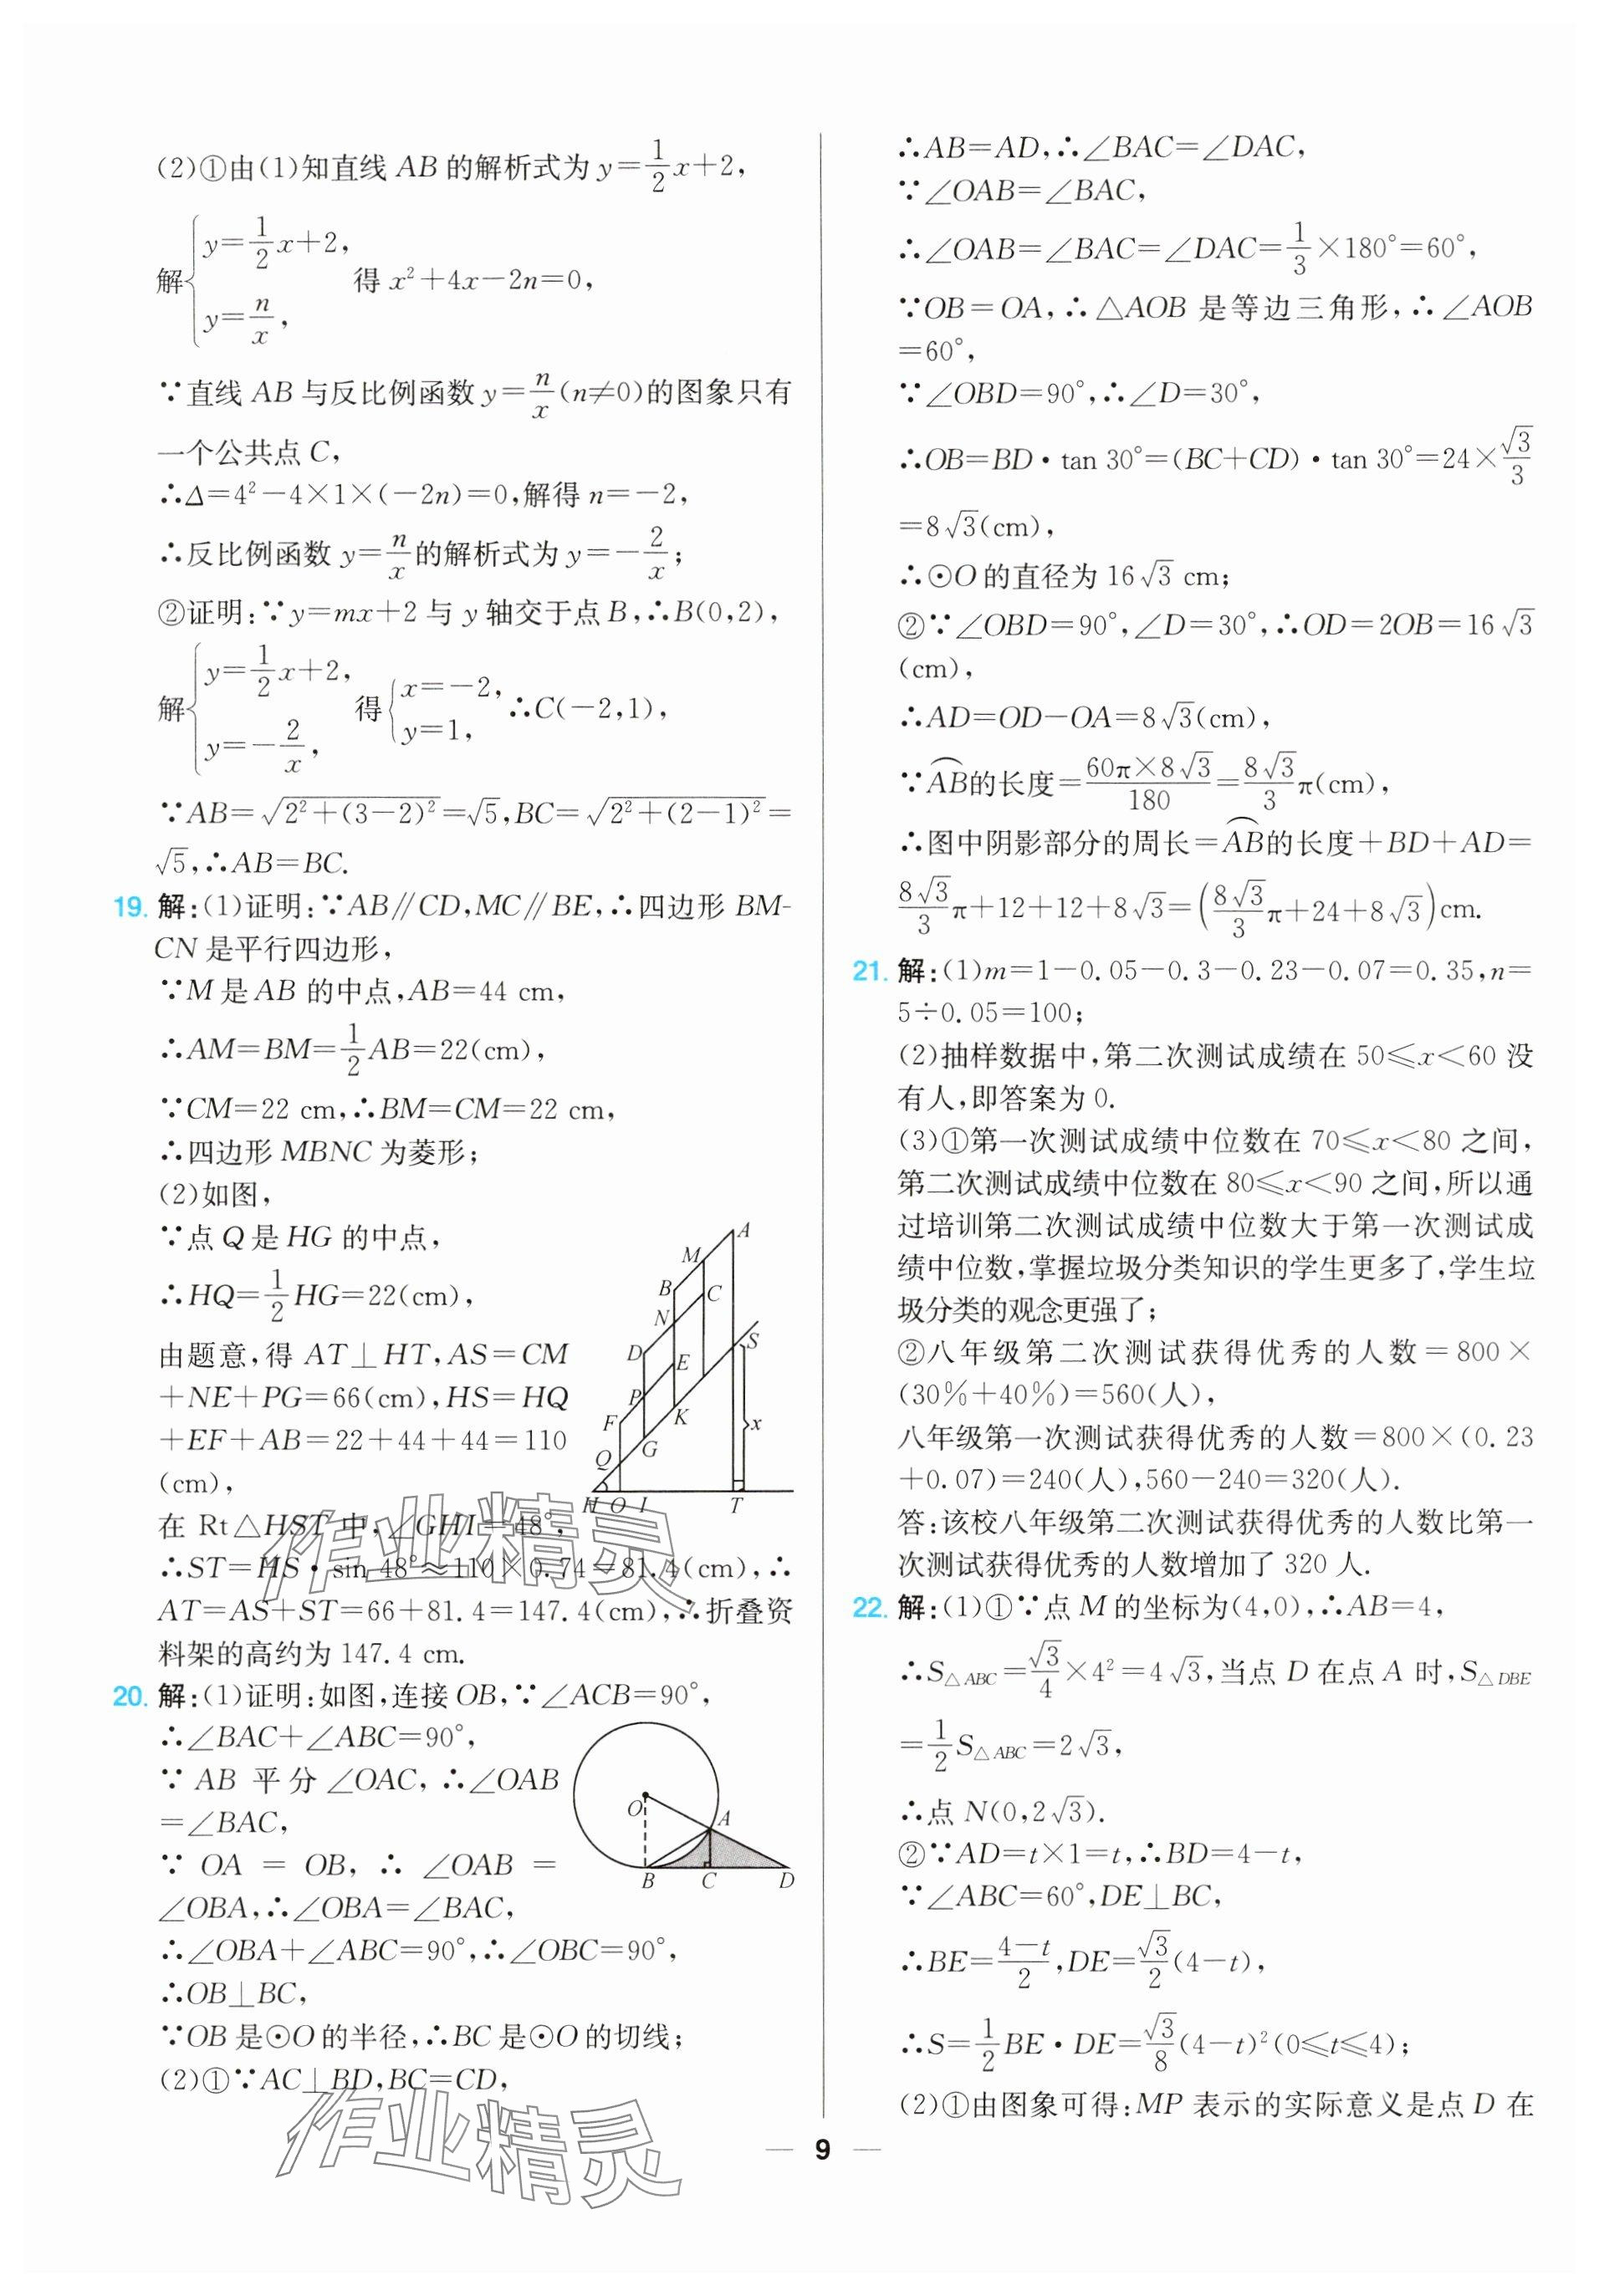 (2)①由(1)知直线 AB 的解析式为 y=1/2x+2,
解{y=1/2x+2, y=n/x, 得 x²+4x-2n=0,
∵直线 AB 与反比例函数 y=n/x(n≠0)的图象只有
一个公共点 C,
∴Δ=4²-4×1×(-2n)=0,解得 n=-2,
∴反比例函数 y=n/x的解析式为 y=-2/x;
②证明:∵y=mx+2 与 y 轴交于点 B,∴B(0,2),
解{y=1/2x+2, y=-2/x, 得{x=-2, y=1, ∴C(-2,1),
∵AB=√(2²+(3-2)²)=√5,BC=√(2²+(2-1)²)=
√5,∴AB=BC.
19. 解:(1)证明:∵AB∥CD,MC∥BE,∴四边形 BM-
CN 是平行四边形,
∵M 是 AB 的中点,AB=44 cm,
∴AM=BM=1/2AB=22(cm),
∵CM=22 cm,∴BM=CM=22 cm,
∴四边形 MBNC 为菱形;
(2)如图,
∵点 Q 是 HG 的中点,
∴HQ=1/2HG=22(cm),
由题意,得 AT⊥HT,AS=CM
+NE+PG=66(cm),HS=HQ
+EF+AB=22+44+44=110
(cm),
A
M
B
C
N
S
D
E
P
K
F
x
G
Q
H O I T
在 Rt△HST 中,∠GHI=48°,
∴ST=HS·sin 48°≈110×0.74=81.4(cm),∴
AT=AS+ST=66+81.4=147.4(cm),∴折叠资
料架的高约为 147.4 cm.
20. 解:(1)证明:如图,连接 OB,∵∠ACB=90°,
∴∠BAC+∠ABC=90°,
∵ AB 平分 ∠OAC, ∴∠OAB
=∠BAC,
∵ OA = OB, ∴ ∠OAB =
∠OBA,∴∠OBA=∠BAC,
O
A
B C D
∴∠OBA+∠ABC=90°,∴∠OBC=90°,
∴OB⊥BC,
∵OB 是⊙O 的半径,∴BC 是⊙O 的切线;
(2)①∵AC⊥BD,BC=CD,
∴AB=AD,∴∠BAC=∠DAC,
∵∠OAB=∠BAC,
∴∠OAB=∠BAC=∠DAC=1/3×180°=60°,
∵OB=OA,∴△AOB 是等边三角形,∴∠AOB
=60°,
∵∠OBD=90°,∴∠D=30°,
∴OB=BD·tan 30°=(BC+CD)·tan 30°=24×√3/3
=8√3(cm),
∴⊙O 的直径为 16√3 cm;
②∵∠OBD=90°,∠D=30°,∴OD=2OB=16√3
(cm),
∴AD=OD-OA=8√3(cm),
∵⌒AB的长度=60π×8√3/180=8√3/3π(cm),
∴图中阴影部分的周长=⌒AB的长度+BD+AD=
8√3/3π+12+12+8√3=(8√3/3π+24+8√3)cm.
21. 解:(1)m=1-0.05-0.3-0.23-0.07=0.35,n=
5÷0.05=100;
(2)抽样数据中,第二次测试成绩在 50≤x<60 没
有人,即答案为 0.
(3)①第一次测试成绩中位数在 70≤x<80 之间,
第二次测试成绩中位数在 80≤x<90 之间,所以通
过培训第二次测试成绩中位数大于第一次测试成
绩中位数,掌握垃圾分类知识的学生更多了,学生垃
圾分类的观念更强了;
②八年级第二次测试获得优秀的人数=800×
(30%+40%)=560(人),
八年级第一次测试获得优秀的人数=800×(0.23
+0.07)=240(人),560-240=320(人).
答:该校八年级第二次测试获得优秀的人数比第一
次测试获得优秀的人数增加了 320 人.
22. 解:(1)①∵点 M 的坐标为(4,0),∴AB=4,
∴S△ABC=√3/4×4²=4√3,当点 D 在点 A 时,S△DBE
=1/2S△ABC=2√3,
∴点 N(0,2√3).
②∵AD=t×1=t,∴BD=4-t,
∵∠ABC=60°,DE⊥BC,
∴BE=4-t/2,DE=√3/2(4-t),
∴S=1/2BE·DE=√3/8(4-t)²(0≤t≤4);
(2)①由图象可得:MP 表示的实际意义是点 D 在
— 9 —
作业精灵
作业精灵